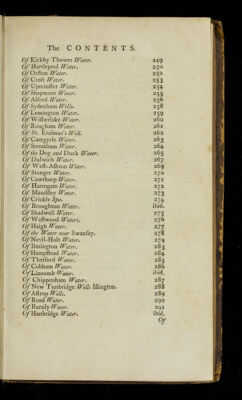 The CONTENTS.
Of Kirkby Thower Water. 249
Of Hartlepool Water. 250
Of Orston Water. 252
Of Croft Water. 253
Of Upminster Water. 254
Of Shapmore Water. 255
Of Alford Water. 256
Of Sydenham Wells. 258
Of Lemington Water. 259
Of Witherslake Water. 260
Of Rougham Water. 261
Of St. Erasmus's Well. 262
Of Caergyrle Water. 263
Of Streatham Water. 264
Of the Dog and Duck Water. 265
Of Dulwich Water. 267
Of West-Ashton Water. 269
Of Stanger Water. 270
Of Cawthorp Water. 271
Of Harrogate Water. 272
Of Maudsley Water. 273
Of Crickle Spa. 274
Of Broughton Water. ibid.
Of Shadwell Water. 275
Of Westwood Water. 276
Of Haigh Water. 277
Of the Water near Swansey. 278
Of Nevil-Holt Water. 279
Of Ilmington Water. 283
Of Hampstead Water. 284
Of Thetford Water. 285
Of Cobham Water. 286
Of Lincomb Water. ibid.
Of Chippenham Water. 287
Of New Tunbridge Wells Islington. 288
Of Astrop Wells. 289
Of Road Water. 290
Of Burnly Water. 291
Of Hanbridge Water. ibid.
Of